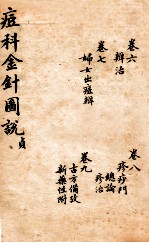 卷六
辨治
卷七
婦女出痘辨
卷八
疹痧門
總論
疹治
卷九
古方備攷
新藥性附
痘科金針圖說 貞